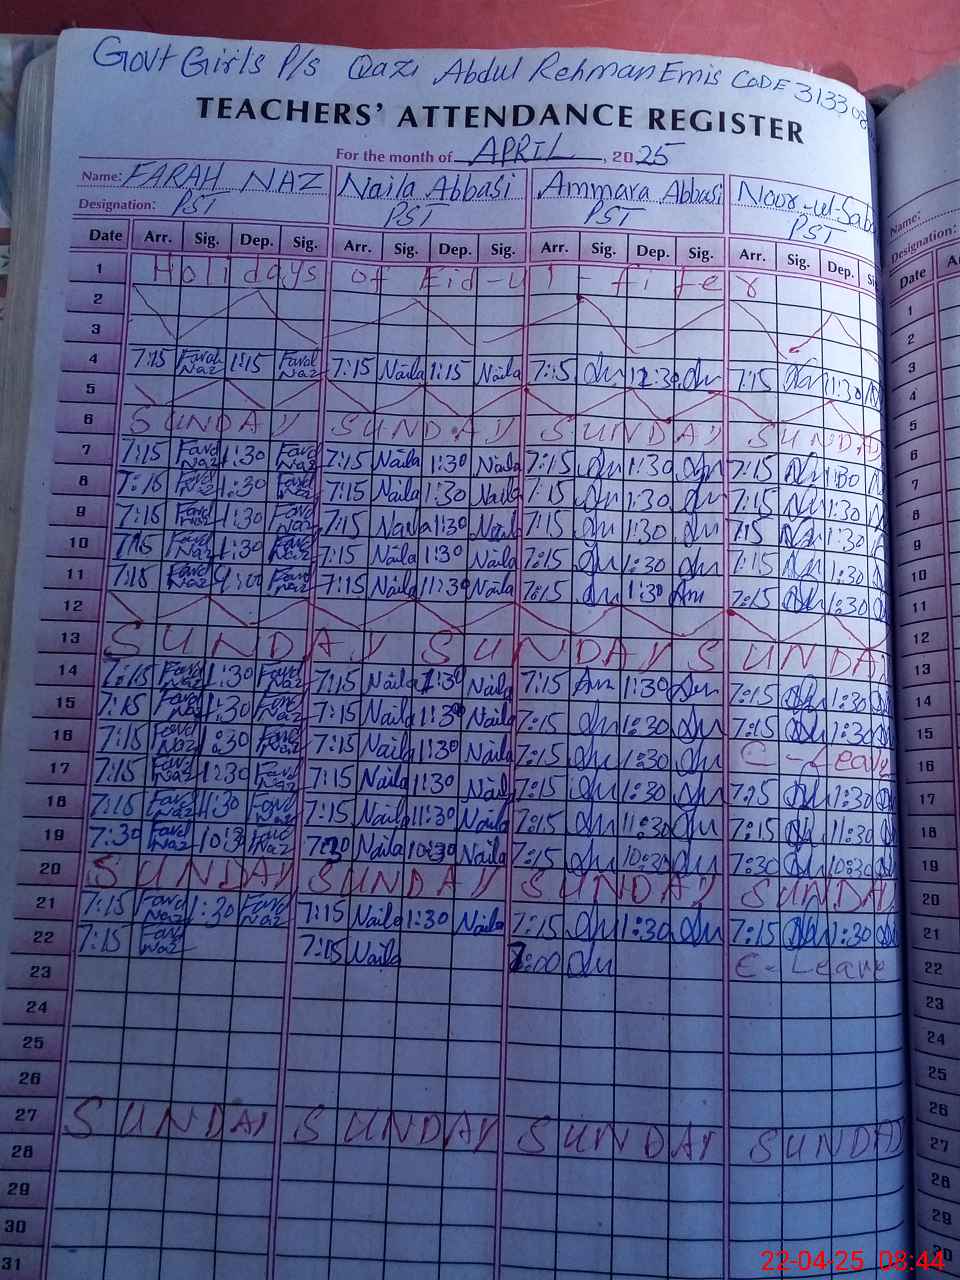 Govt Girls P/s Qazi Abdul Rehman Emis CODE 31330
TEACHERS' ATTENDANCE REGISTER
For the month of APRIL, 2025
Name: FARAH NAZ Naila Abbasi Ammara Abbasi Noor-ul-Saba
Designation: PST PST PST PST
Date Arr. Sig. Dep. Sig. Arr. Sig. Dep. Sig. Arr. Sig. Dep. Sig. Arr. Sig. Dep.
1 Holidays of Eid-ul-fiter
2
3
4 7:15 Farah Naz 1:15 Farah Naz 7:15 Naila 1:15 Naila 7:15 7:15 11:30
5
6 SUNDAY SUNDAY SUNDAY SUNDAY
7 7:15 Farah Naz 1:30 Farah Naz 7:15 Naila 1:30 Naila 7:15 1:30 7:15 1:30
8 7:15 Farah Naz 1:30 Farah Naz 7:15 Naila 1:30 Naila 7:15 1:30 7:15 1:30
9 7:15 Farah Naz 1:30 Farah Naz 7:15 Naila 1:30 Naila 7:15 1:30 7:15 1:30
10 7:15 Farah Naz 1:30 Farah Naz 7:15 Naila 1:30 Naila 7:15 1:30 7:15 1:30
11 7:15 Farah Naz Farah Naz 7:15 Naila 11:30 Naila 7:15 1:30 7:15 1:30
12
13 SUNDAY SUNDAY SUNDAY
14 7:15 Farah Naz 1:30 Farah Naz 7:15 Naila 1:30 Naila 7:15 1:30 7:15 1:30
15 7:15 Farah Naz 1:30 Farah Naz 7:15 Naila 1:30 Naila 7:15 1:30 7:15 1:30
16 7:15 Farah Naz 1:30 Farah Naz 7:15 Naila 1:30 Naila 7:15 1:30 C-Leave
17 7:15 Farah Naz 1:30 Farah Naz 7:15 Naila 1:30 Naila 7:15 1:30 7:15 1:30
18 7:15 Farah Naz 11:30 Farah Naz 7:15 Naila 11:30 Naila 7:15 11:30 7:15 11:30
19 7:30 Farah Naz 10:30 Farah Naz 7:30 Naila 10:30 Naila 7:15 10:30 7:30 10:30
20 SUNDAY SUNDAY SUNDAY SUNDAY
21 7:15 Farah Naz 1:30 Farah Naz 7:15 Naila 1:30 Naila 7:15 1:30 7:15 1:30
22 7:15 Farah Naz 7:15 Naila :00 C-Leave
23
24
25
26
27 SUNDAY SUNDAY SUNDAY SUNDAY
28
29
30
31
Name:
Designation:
Date
1
2
3
4
5
6
7
8
9
10
11
12
13
14
15
16
17
18
19
20
21
22
23
24
25
26
27
28
29
30
22-04-25 08:44